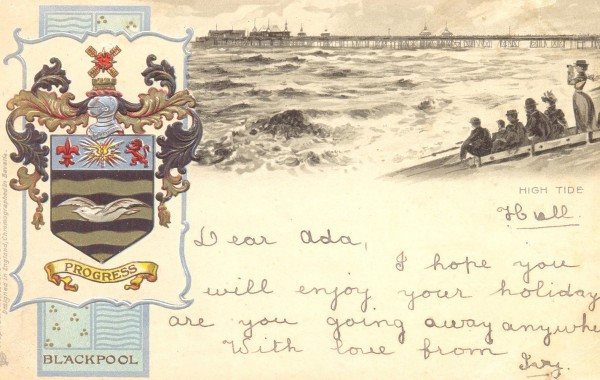 HIGH TIDE
Hull.
Dear Ada,
I hope you
will enjoy your holiday
are you going away anywhe
With love from
Ivy.
PROGRESS
BLACKPOOL
Designed in England, Chromographed in Bavaria